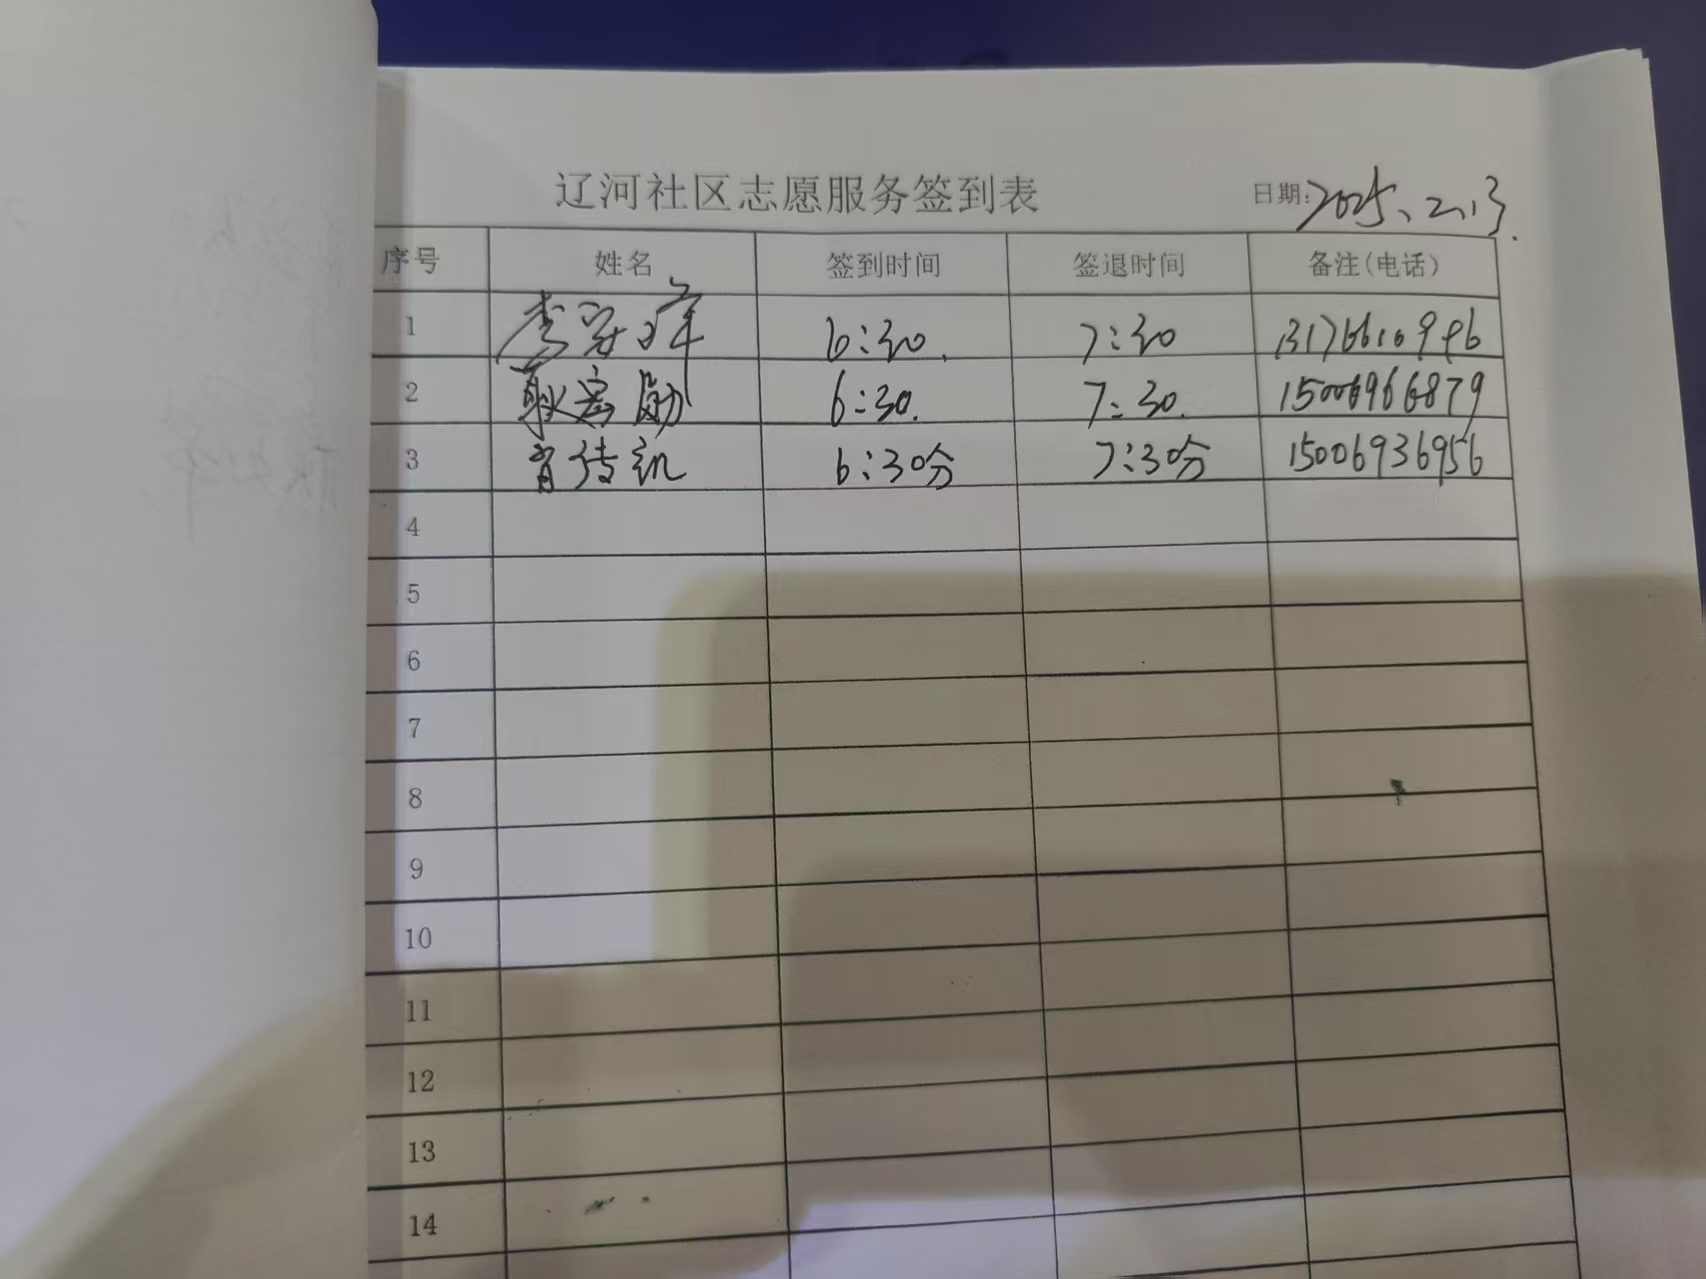 辽河社区志愿服务签到表 日期: 2025.2.13.
序号 姓名 签到时间 签退时间 备注(电话)
1 李 6:30. 7:30 13176610946
2 耿宏勋 6:30. 7:30. 15006966879
3 肖传凯 6:30分 7:30分 15006936956
4
5
6
7
8
9
10
11
12
13
14